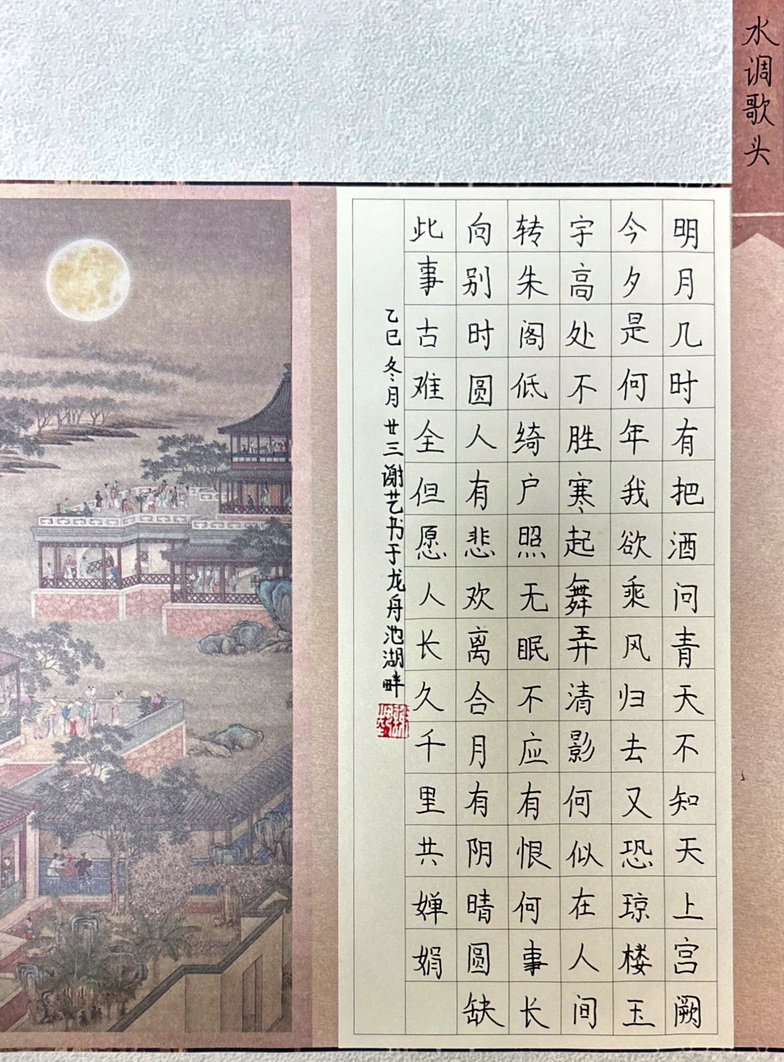 水调歌头
明月几时有把酒问青天不知天上宫阙
今夕是何年我欲乘风归去又恐琼楼玉
宇高处不胜寒起舞弄清影何似在人间
转朱阁低绮户照无眠不应有恨何事长
向别时圆人有悲欢离合月有阴晴圆缺
此事古难全但愿人长久千里共婵娟
乙巳冬月廿三谢艺书于龙舟池湖畔